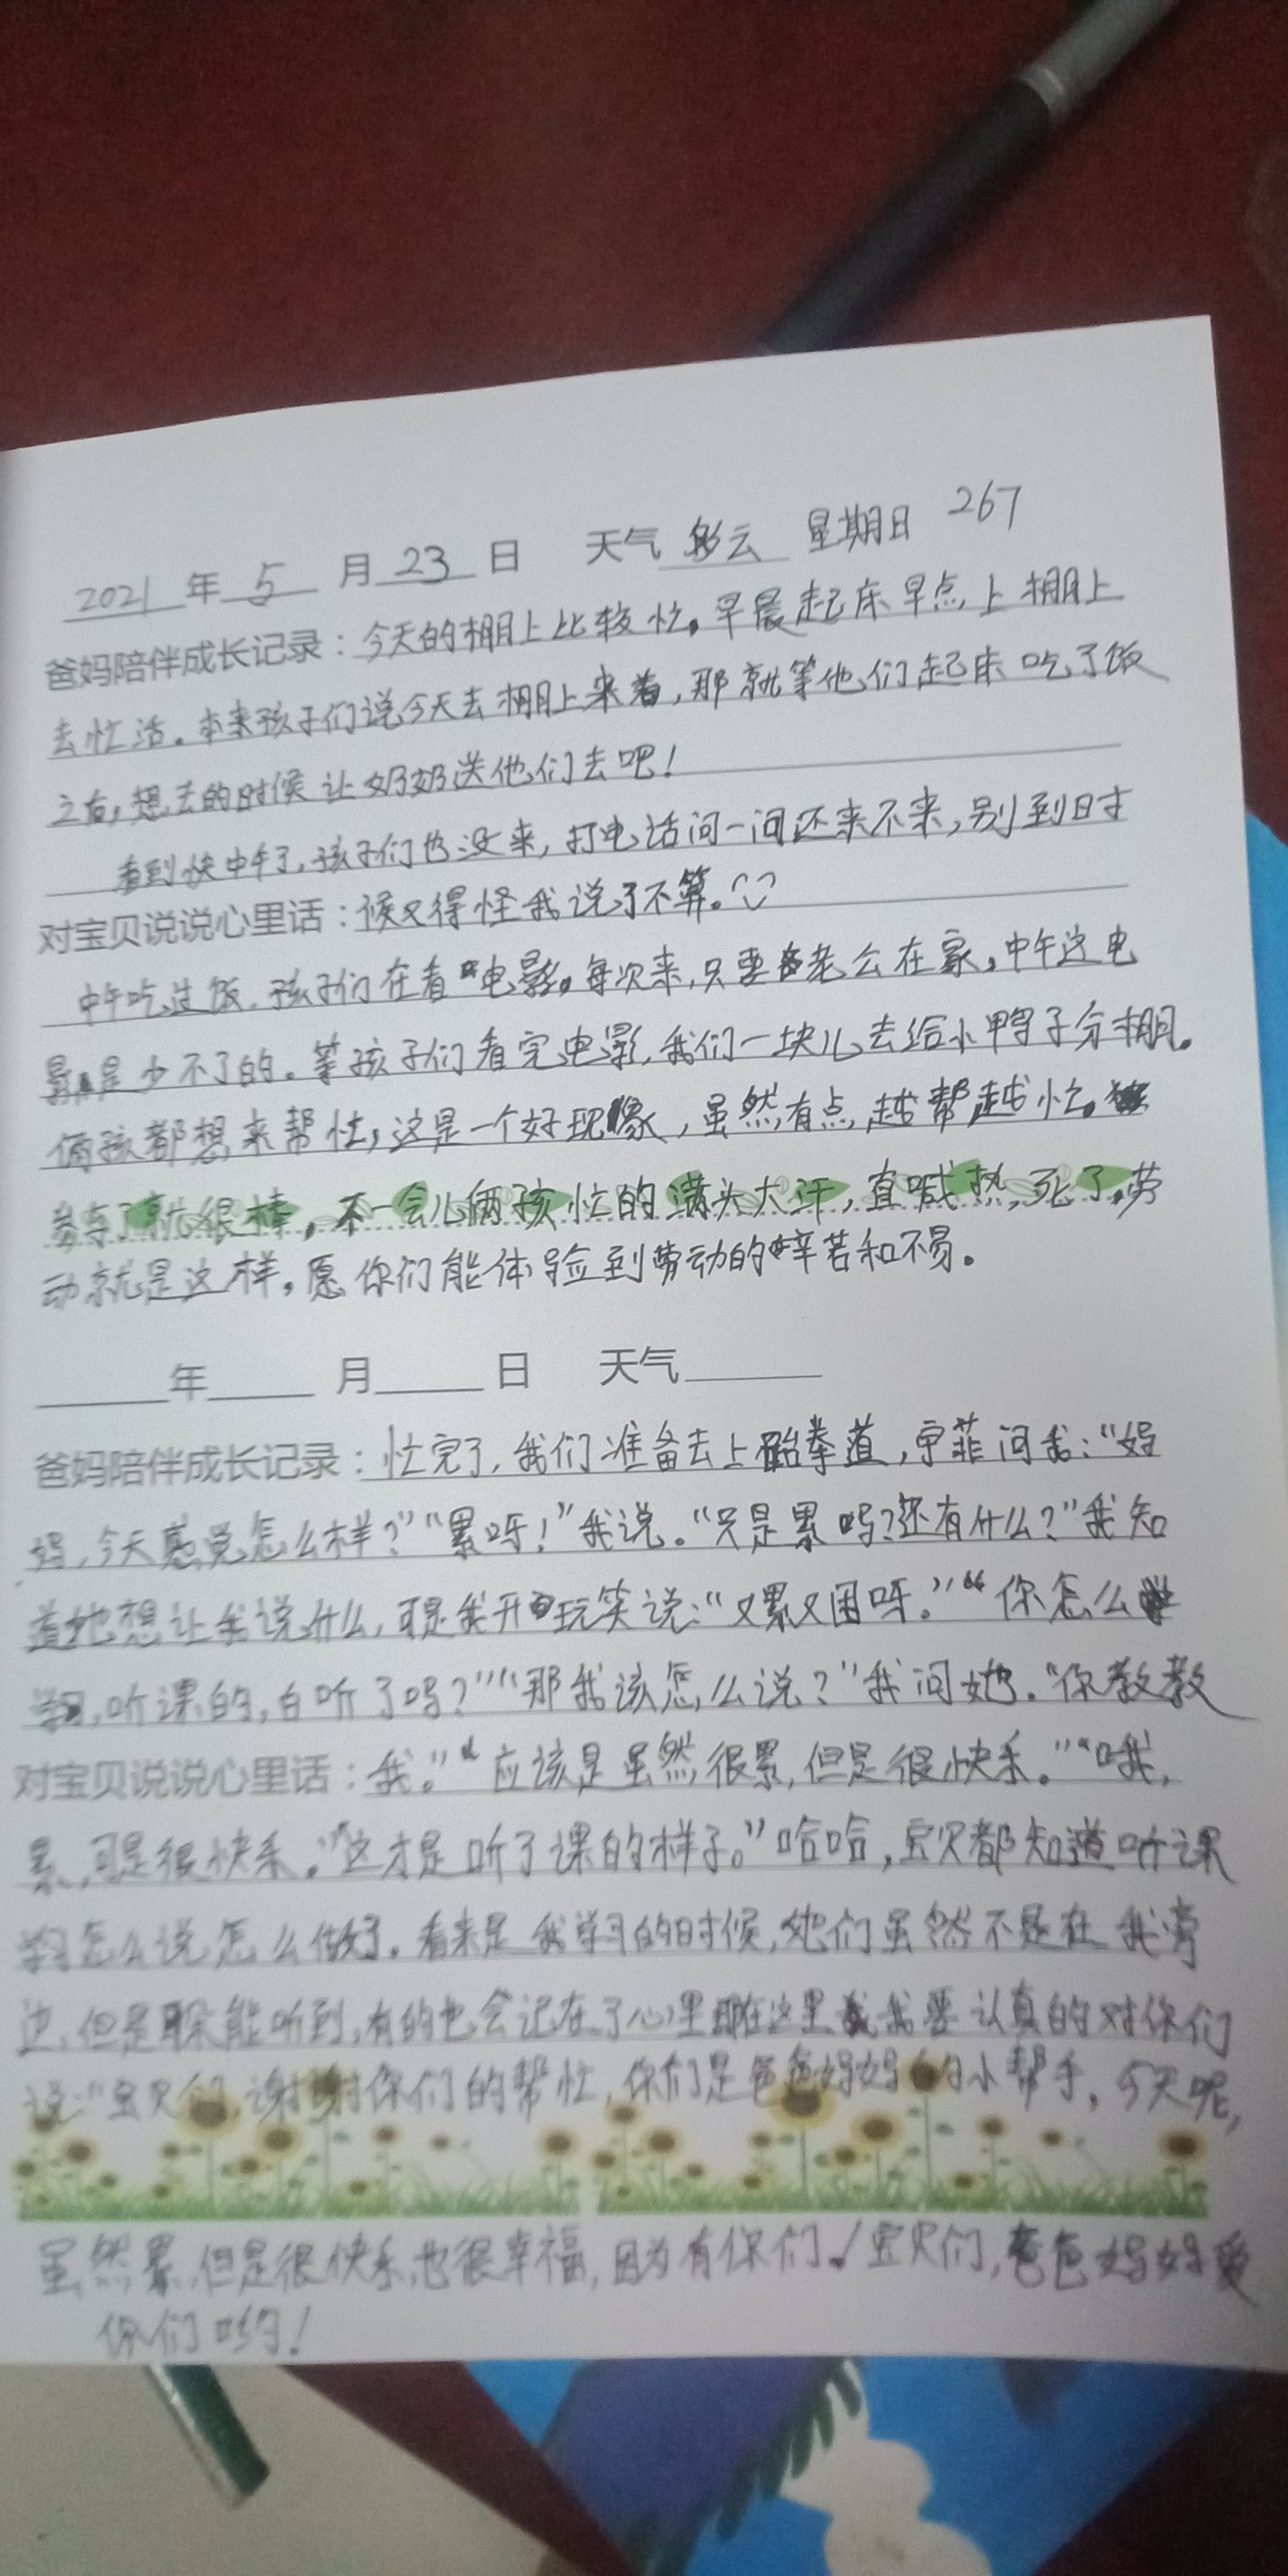 2021 年 5 月 23 日 天气 多云 星期日 267
爸妈陪伴成长记录：今天的棚上比较忙。早晨起床早点上棚上
去忙活。本来孩子们说今天去棚上来着，那就等他们起床吃了饭
之后，想去的时候让奶奶送他们去吧！
看到快中午了，孩子们也没来，打电话问一问还来不来，别到时
对宝贝说说心里话：候又得怪我说了不算。
中午吃过饭，孩子们在看电影。每次来，只要老公在家，中午这电
影是少不了的。等孩子们看完电影，我们一块儿去给小鸭子分棚。
俩孩都想来帮忙，这是一个好现像，虽然有点越帮越忙。
参与了就很棒，不一会儿俩孩忙的满头大汗，直喊热死了，劳
动就是这样。愿你们能体验到劳动的辛苦和不易。
年 月 日 天气
爸妈陪伴成长记录：忙完了，我们准备去上跆拳道，宇菲问我：“妈
妈，今天感觉怎么样？”“累呀！”我说。“只是累吗？还有什么？”我知
道她想让我说什么，可是我开玩笑说：“又累又困呀。”“你怎么
学习，听课的，白听了吗？”“那我该怎么说？”我问她。“你教教
对宝贝说说心里话：我。”“应该是虽然很累，但是很快乐。”“哦，
累，可是很快乐。”“这才是听了课的样子。”哈哈，宝贝都知道听课
学习怎么说怎么做了。看来是我学习的时候，她们虽然不是在我旁
边，但是都能听到，有的也会记在了心里。在这里我要认真的对你们
说：“宝贝们，谢谢你们的帮忙，你们是爸爸妈妈的小帮手，今天呢，
虽然累，但是很快乐，也很幸福，因为有你们！宝贝们，爸爸妈妈爱
你们哟！